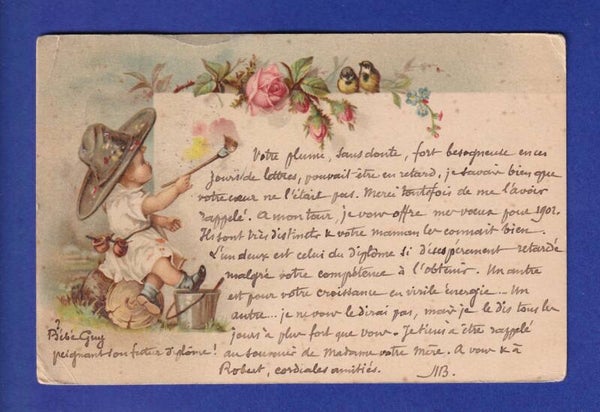 Votre plume, sans doute, fort besogneuse en ces
jours de lettres, pouvait être en retard, je savais bien que
votre cœur ne l'était pas. Merci toutefois de me l'avoir
rappelé. A mon tour, je vous offre mes vœux pour 1901.
Ils sont très distincts & votre maman les connait bien.
L'un deux est celui du diplôme si désespérament retardé
malgré votre compétence à l'obtenir. Un autre
est pour votre croissance en virile énergie... Un
autre... je ne vous le dirai pas, mais je le dis tous les
jours à plus fort que vous. Je tiens à être rappelé
au souvenir de Madame votre Mère. A vous & à
Robert, cordiales amitiés. MB.
Bébé Guy
peignant son futur diplôme!